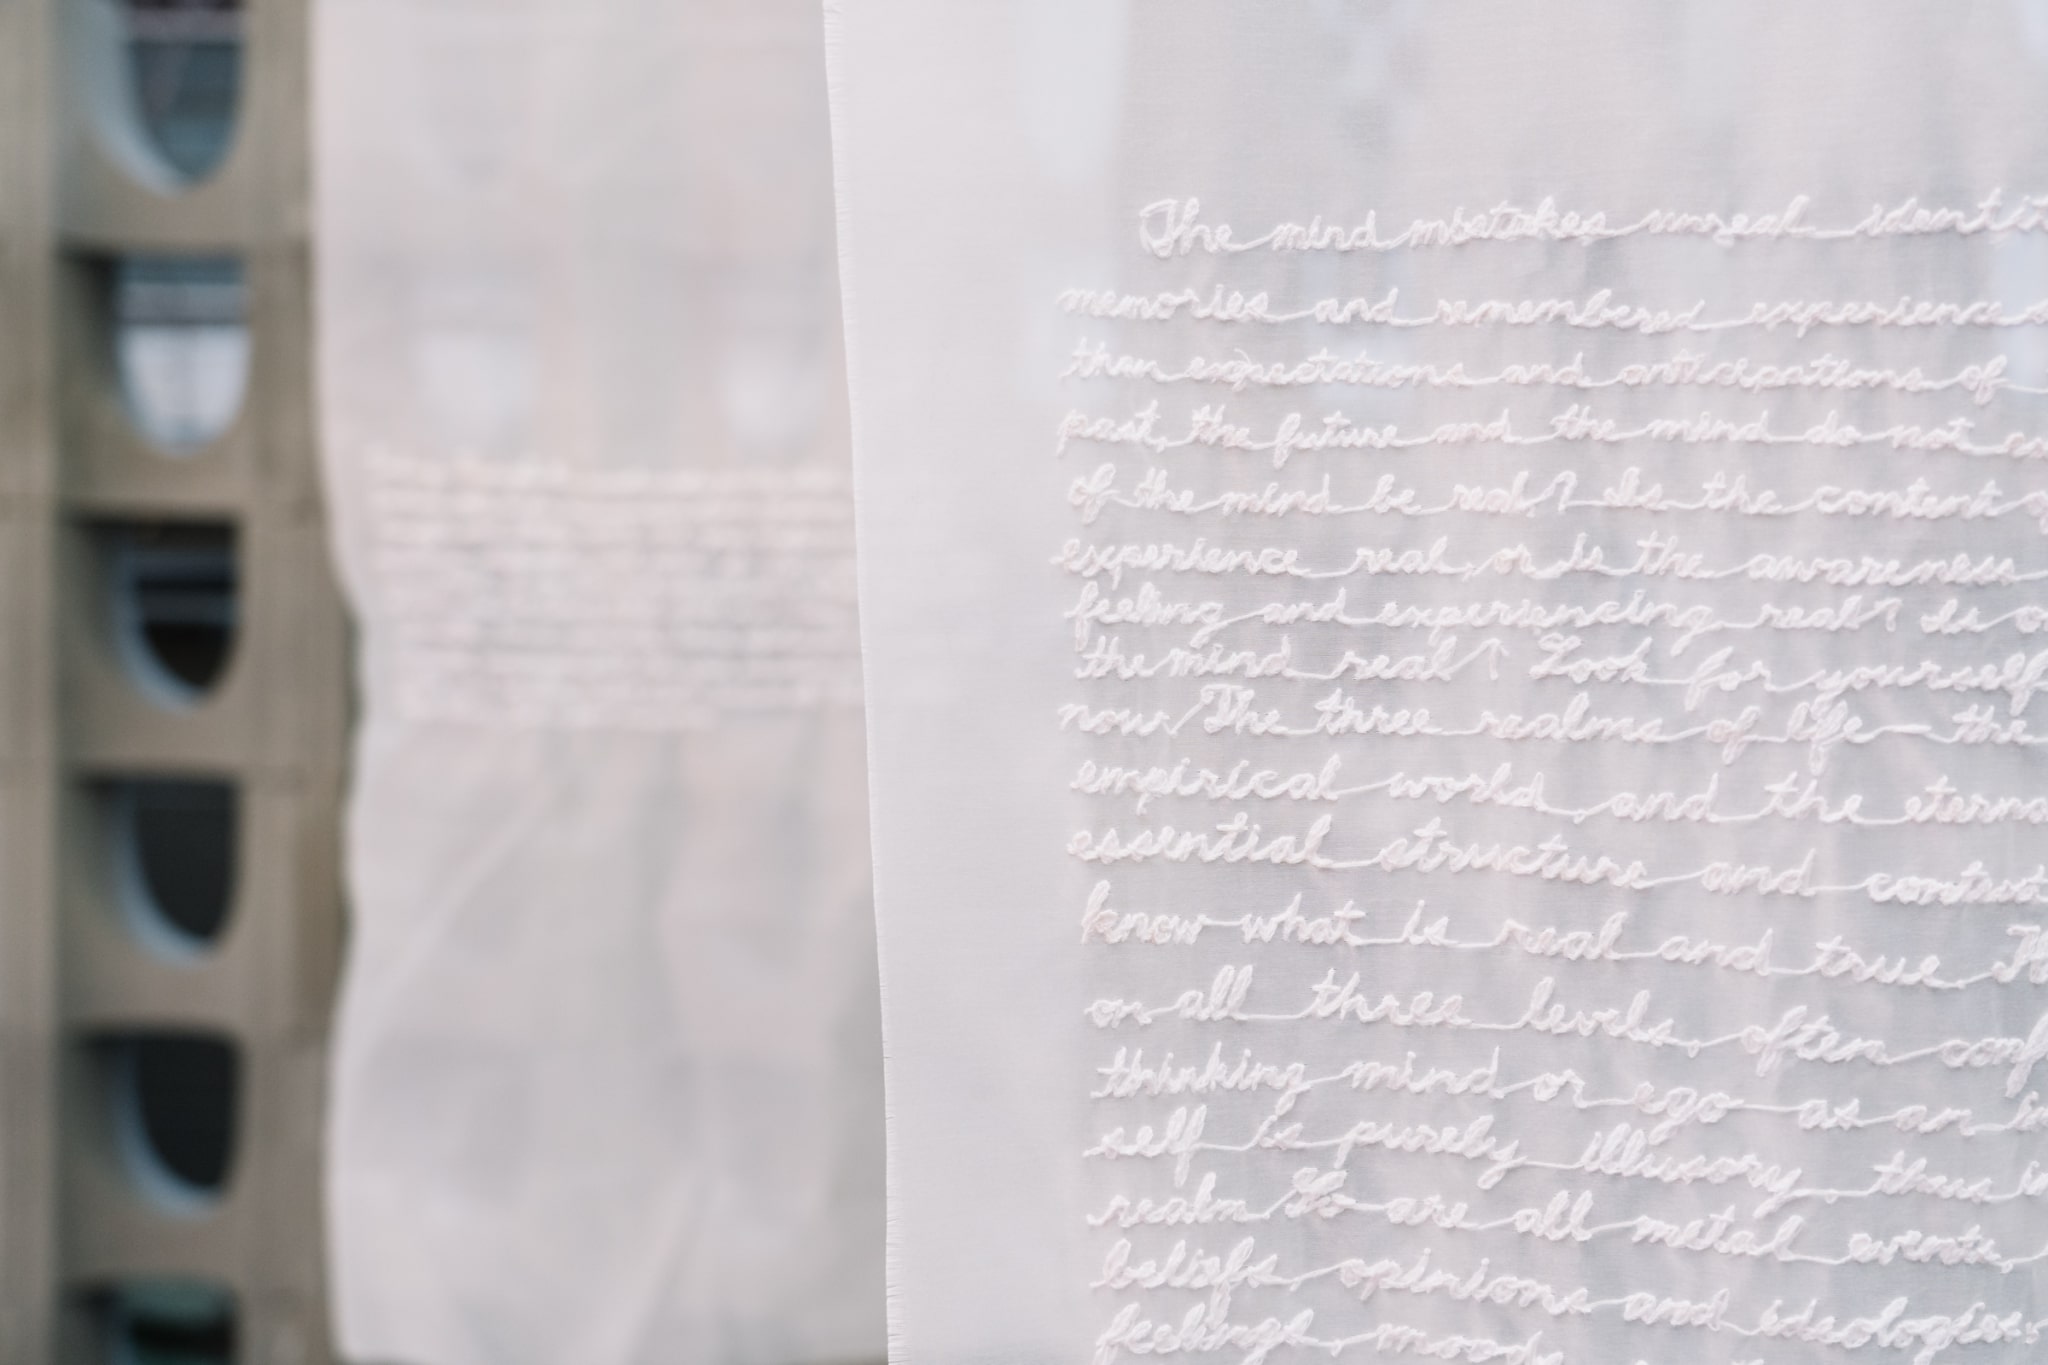 The mind mistakes unreal identit
memories and remembered experience
than expectations and anticipations of
past, the future and the mind do not ex
of the mind be real? Is the content o
experience real, or is the awareness
feeling and experiencing real? Is o
the mind real? Look for yourself
now. The three realms of life – the
empirical world, and the eterna
essential structure and
know what is real and true.
on all three levels, often conf
thinking mind or ego as an
self is purely illusory, thus
realm So are all metal events,
beliefs, opinions and ideologies,
feelings, moods